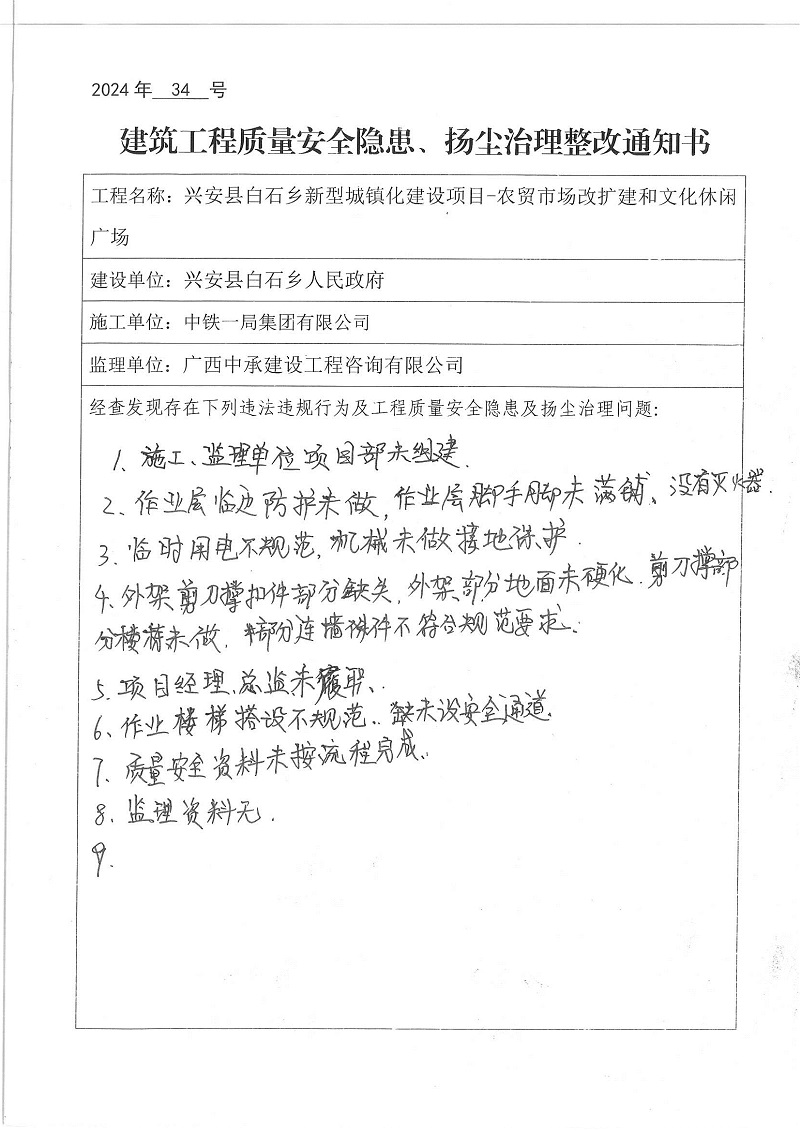 2024 年 34 号
建筑工程质量安全隐患、扬尘治理整改通知书
工程名称：兴安县白石乡新型城镇化建设项目-农贸市场改扩建和文化休闲
广场
建设单位：兴安县白石乡人民政府
施工单位：中铁一局集团有限公司
监理单位：广西中承建设工程咨询有限公司
经查发现存在下列违法违规行为及工程质量安全隐患及扬尘治理问题：
1、施工、监理单位项目部未组建.
2、作业层临边防护未做，作业层脚手脚未满铺、没有灭火器.
3、临时用电不规范，机械未做接地保护.
4、外架剪刀撑扣件部分缺失，外架部分地面未硬化.剪刀撑部
分未做.部分连墙件不符合规范要求、
5、项目经理、总监未履职、
6、作业楼梯搭设不规范、未设安全通道.
7、质量安全资料未按流程完成、
8、监理资料无.
9、